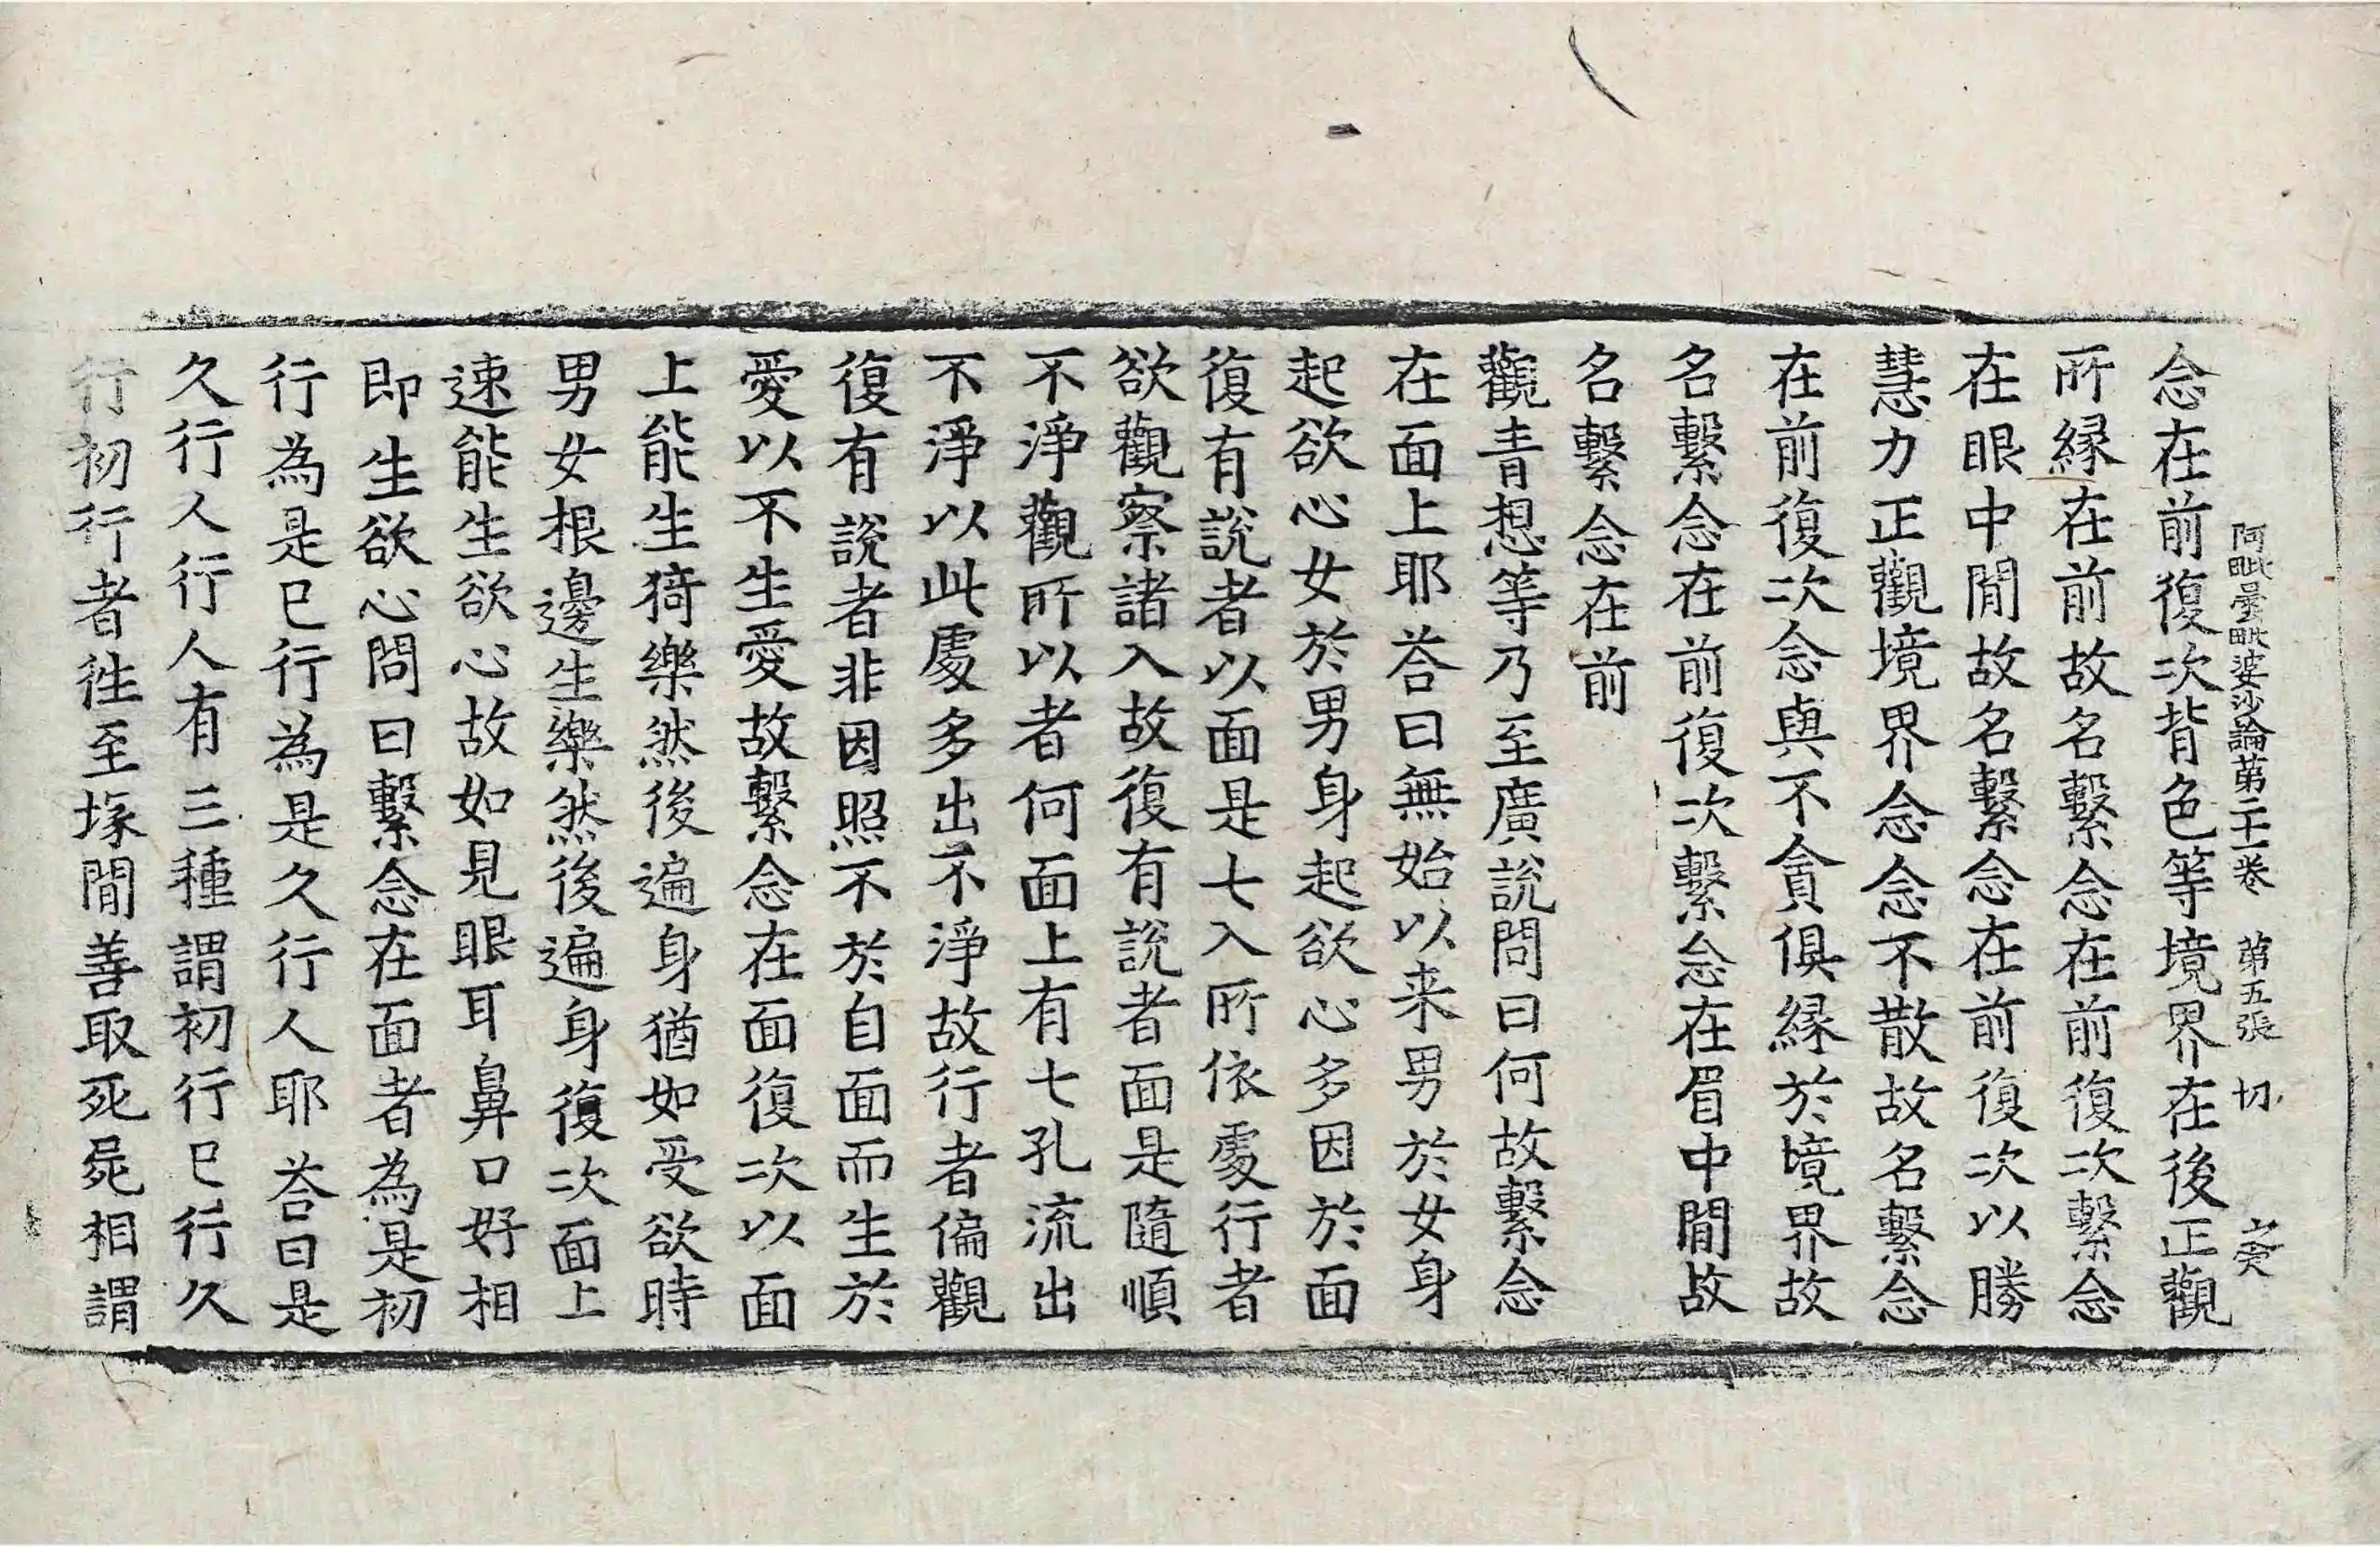 阿毗曇毗婆沙論第二十一卷 第五張 切
念在前復次背色等境界在後正觀
所縁在前故名繫念在前復次繫念
在眼中間故名繫念在前復次以勝
慧力正觀境界念念不散故名繫念
在前復次念與不貪俱縁於境界故
名繫念在前復次繫念在眉中間故
名繫念在前
觀青想等乃至廣說問曰何故繫念
在面上耶荅曰無始以来男於女身
起欲心女於男身起欲心多因於面
復有說者以面是七入所依處行者
欲觀察諸入故復有說者面是隨順
不淨觀所以者何面上有七孔流出
不淨以此處多出不淨故行者偏觀
復有說者非因照不於自面而生於
愛以不生愛故繫念在面復次以面
上能生猗樂然後遍身猶如受欲時
男女根邊生樂然後遍身復次面上
速能生欲心故如見眼耳鼻口好相
即生欲心問曰繫念在面者為是初
行為是已行為是久行人耶荅曰是
久行人行人有三種謂初行已行久
行初行者徃至塚間善取死屍相謂